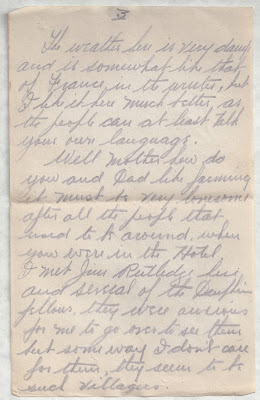 3
The weather here is very damp
and is somewhat like that
of France in the winter, but
I like it here much better, as
the people can at least talk
your own language.
Well Mother how do
you and Dad like farming
it must be very lonesome
after all the people that
used to be around, when
you were in the Hotel
I met Jim Rutledge here
and several of the Dauphin
fellows, they were anxious
for me to go over to see them
but some way I don't care
for them, they seem to be
such villagers.